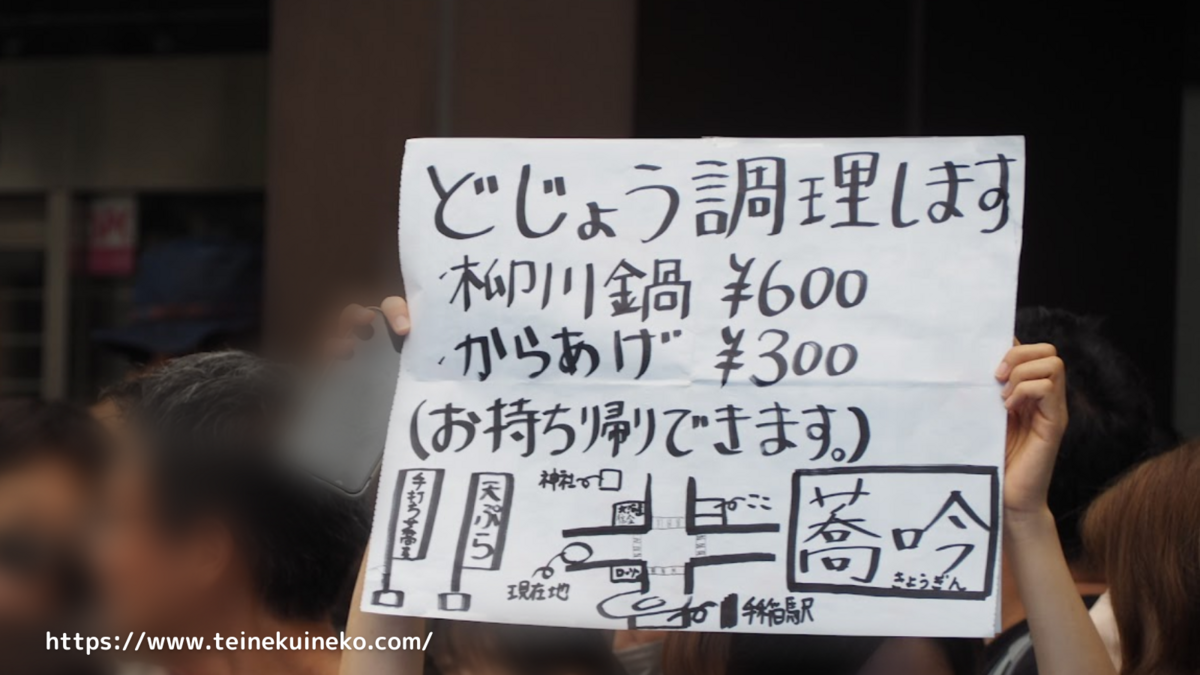 どじょう調理します
・柳川鍋 ¥600
・からあげ ¥300
(お持ち帰りできます。)
手打ち蕎麦
天ぷら
神社
ここ
現在地
手稲駅
蕎吟
きょうぎん
https://www.teinekuineko.com/